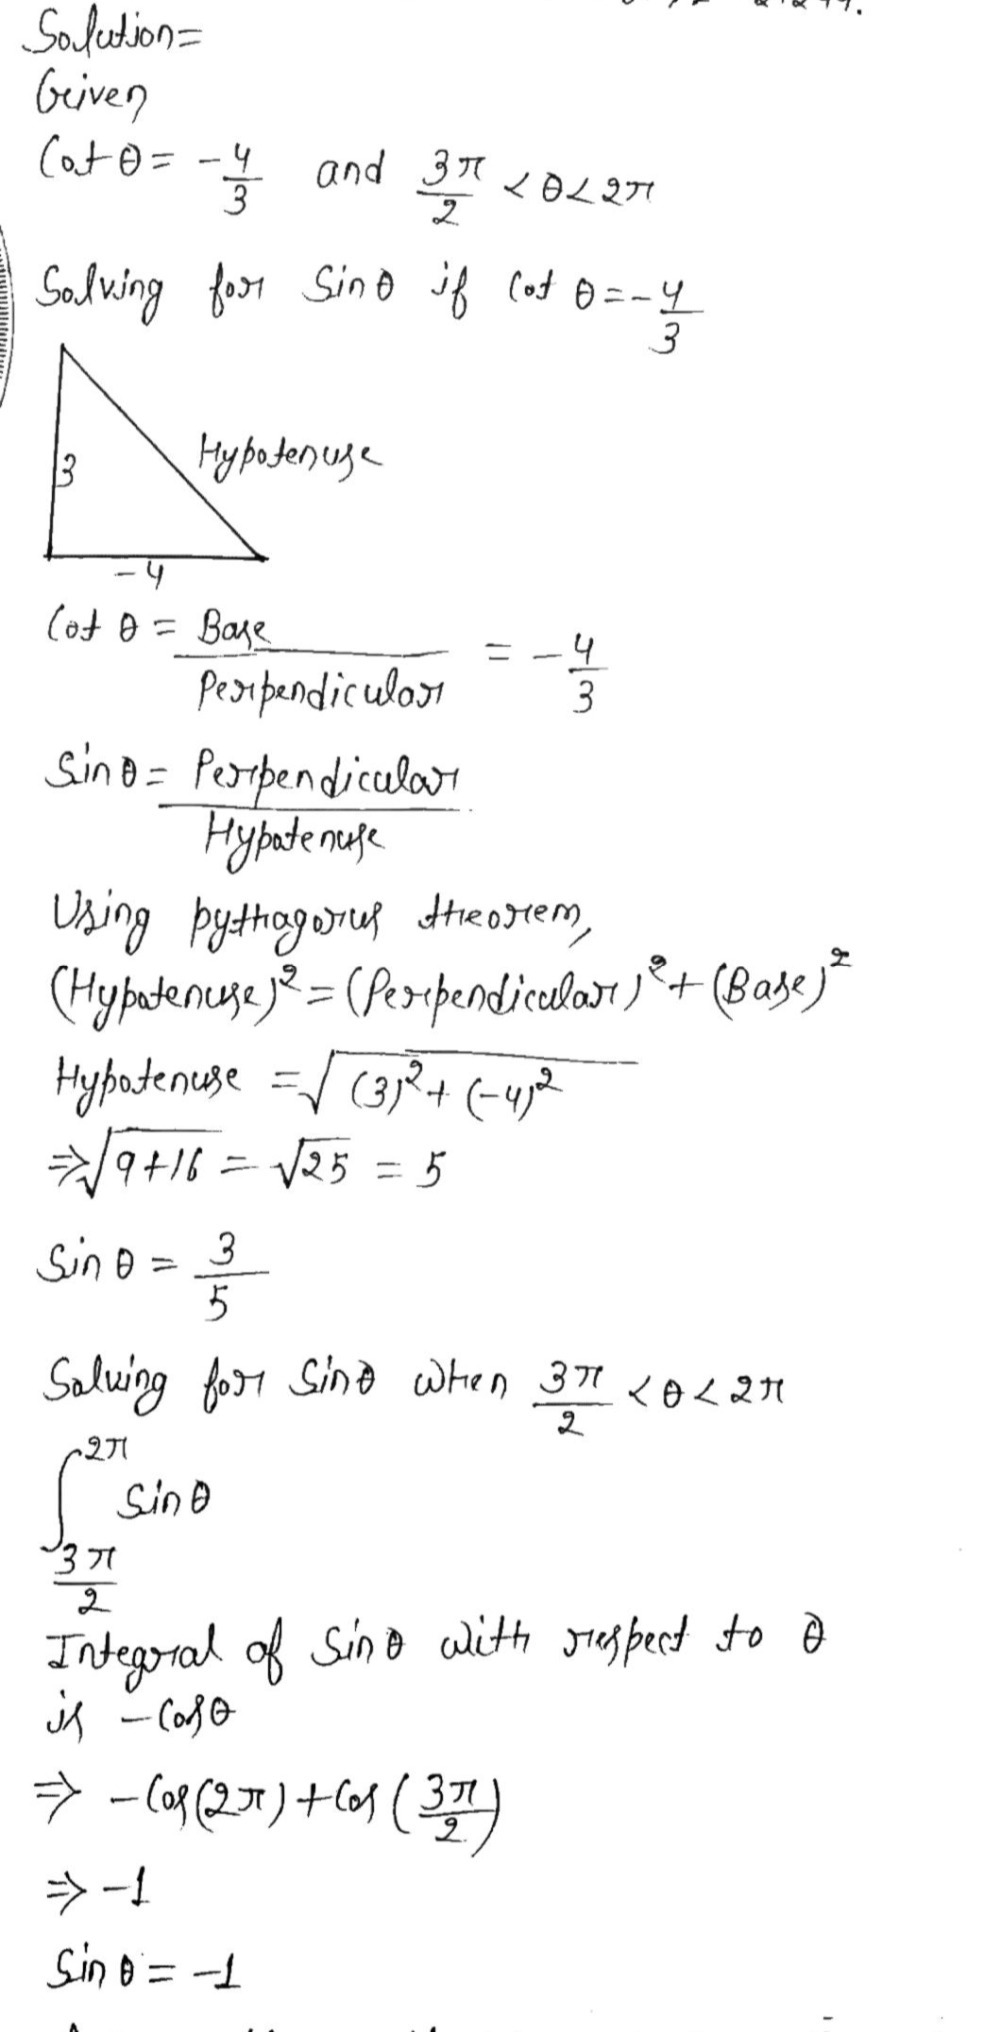 Solution=
Given
Cot θ = -4/3 and 3π/2 < θ < 2π
Solving for Sin θ if Cot θ = -4/3
3
Hypotenuse
-4
Cot θ = Base/Perpendicular = -4/3
Sin θ = Perpendicular/Hypotenuse
Using pythagorus theorem,
(Hypotenuse)² = (Perpendicular)² + (Base)²
Hypotenuse = √((3)² + (-4)²)
⇒ √(9+16) = √25 = 5
Sin θ = 3/5
Solving for Sin θ when 3π/2 < θ < 2π
∫_{3π/2}^{2π} Sin θ
Integral of Sin θ with respect to θ
is - Cos θ
⇒ - Cos(2π) + Cos (3π/2)
⇒ -1
Sin θ = -1